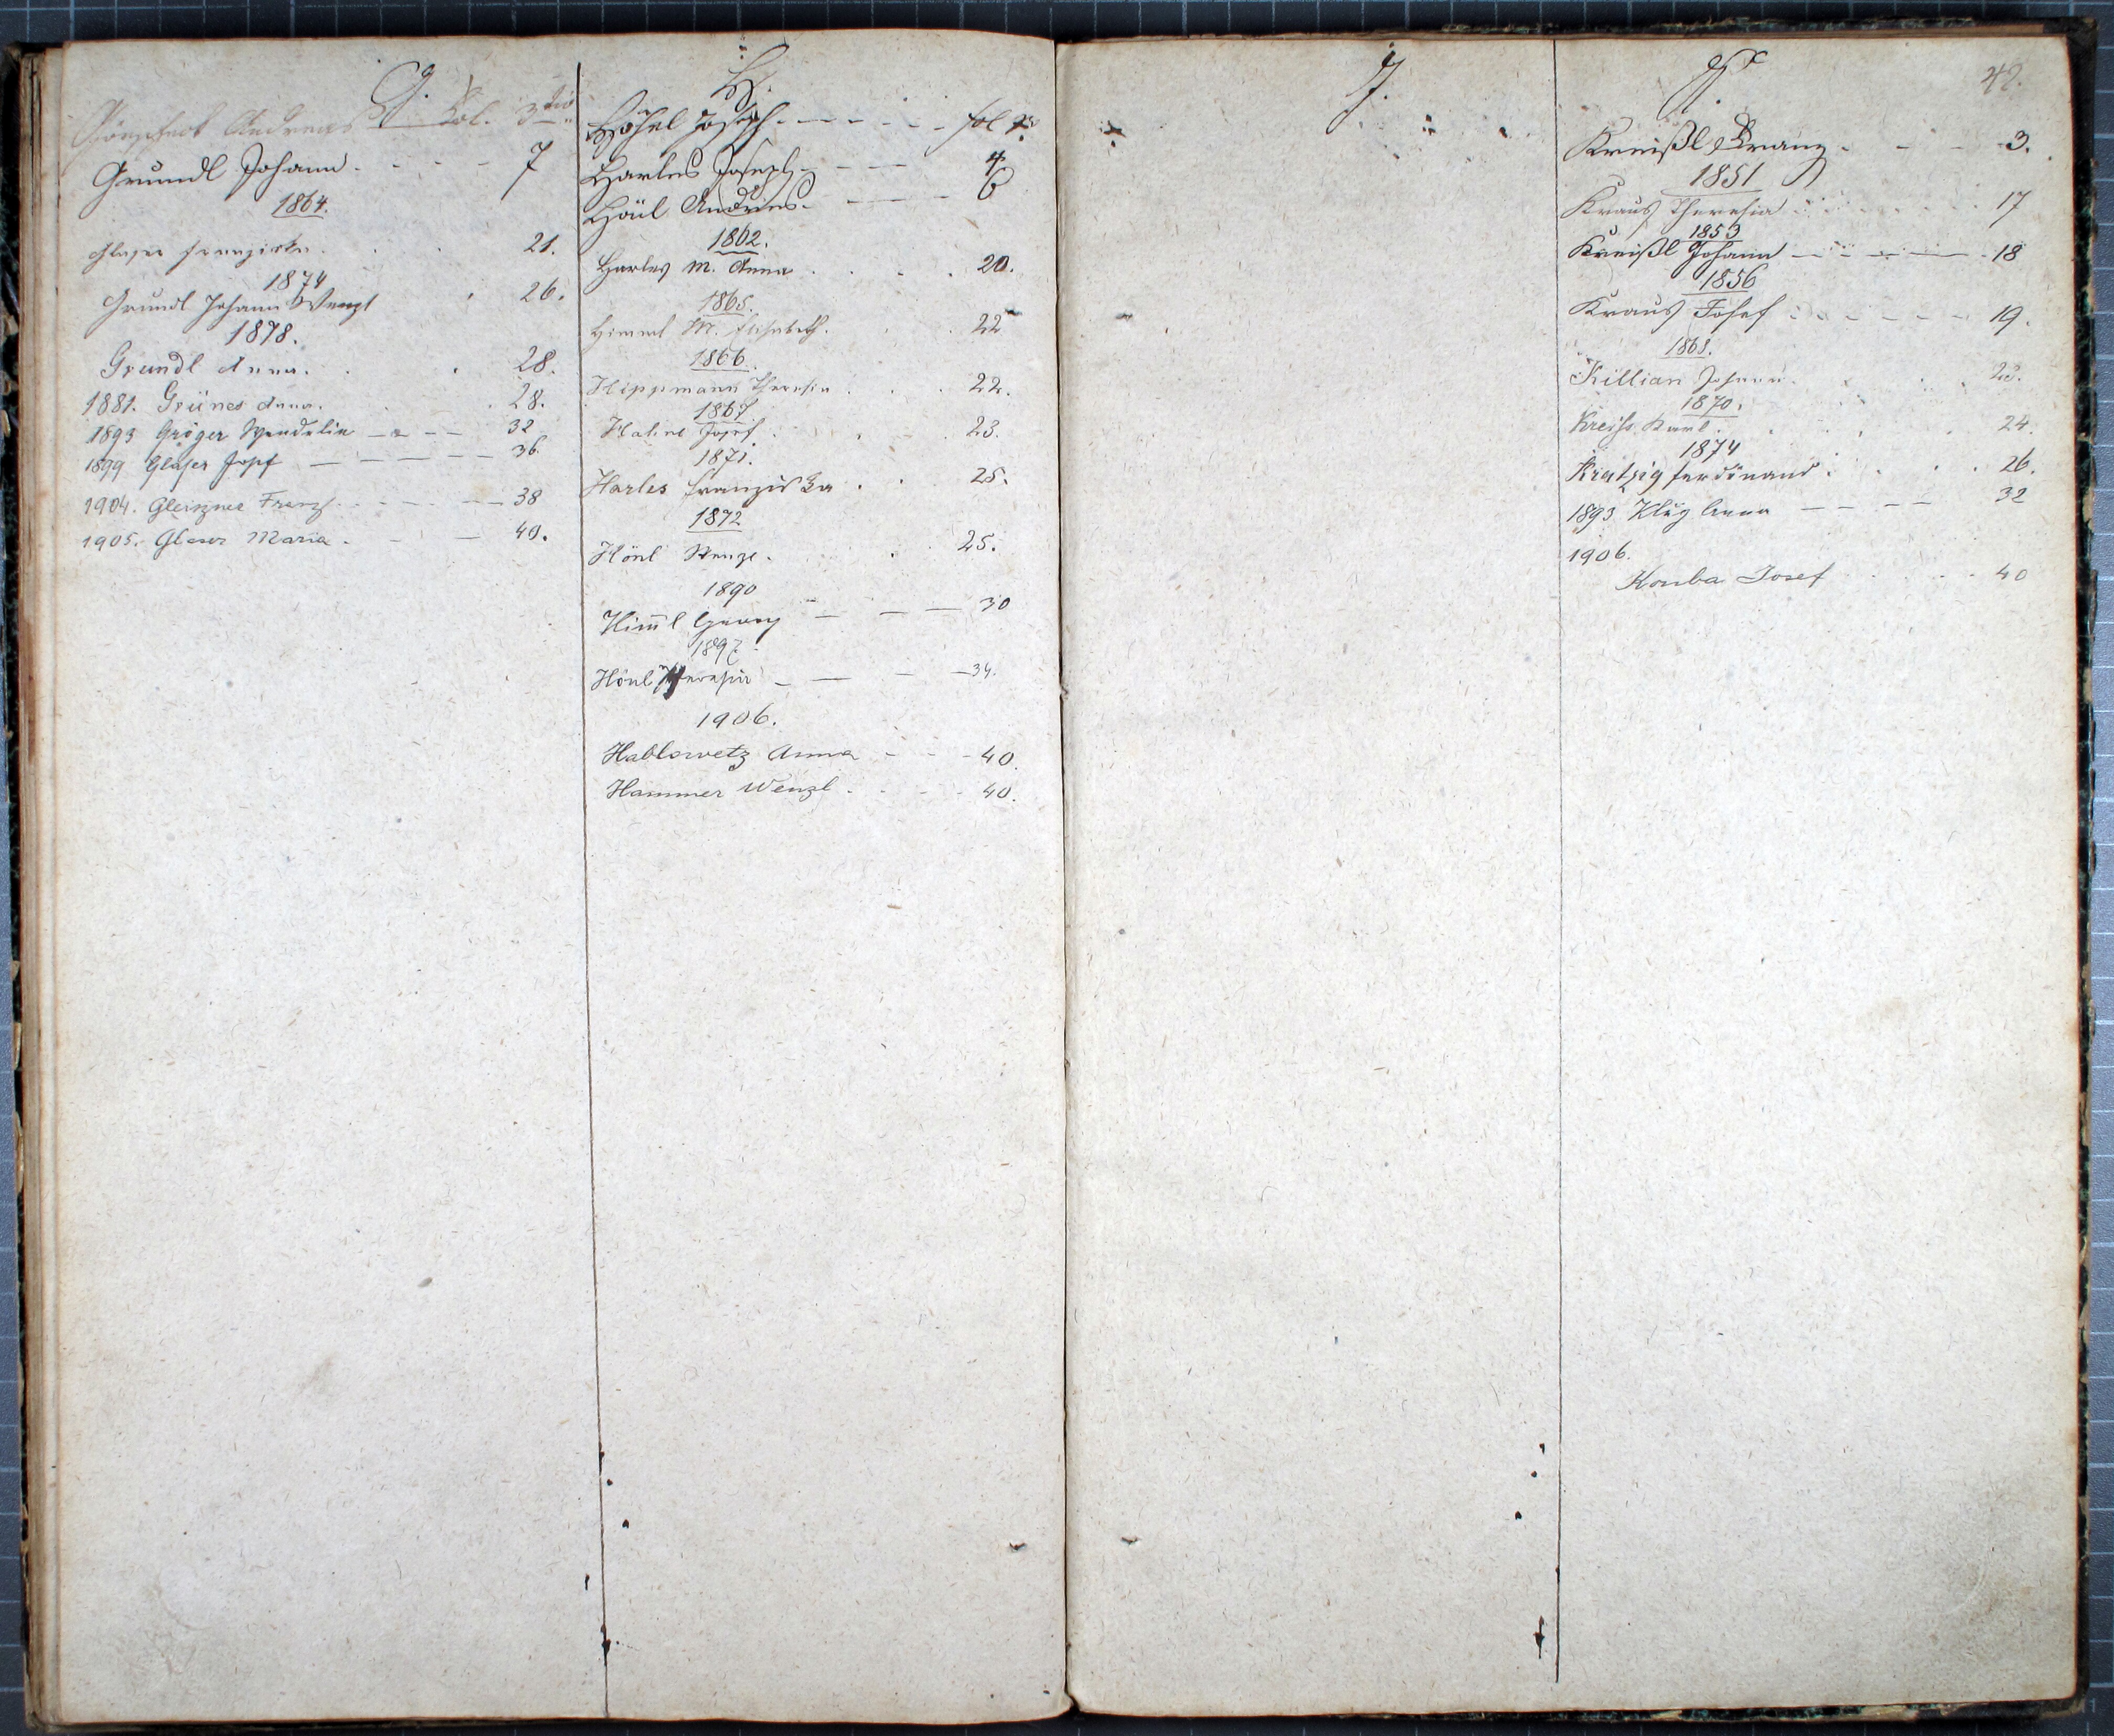 G.
Andreas Fol. 3tio
Grundl Johann - - - - 7
1864.
Glaser Franziska . . . 21.
1874
Grundl Johann Wenzl . 26.
1878.
Grundl Anna . . . 28.
1881. Grünes Anna . . . 28.
1893 Gröger Wendelin — — — 32
1899 Glaser Josef — — — — — 36.
1904. Gleixner Franz - - - - — 38
1905. Glaser Maria . - - — 40.
H.
Höhnl Joseph - - - - - - fol
Harles Joseph - - - - 4
Hönl Andreas - - - - 6
1862.
Harles M. Anna . . . . 20.
1865.
Himml M. Elisabeth . . . 22
1866.
Hippmann Theresia . . . 22.
1867
Josef . . . 23.
1871.
Harles Franziska . . . 25.
1872
Hönl Wenzl . . . 25.
1890
Him̄l Georg — — — 30
1897.
Hönl Theresia — — — — 34.
1906.
Hablowetz Anna - - - 40.
Hammer Wenzl . - - - 40.
J.
K.
42.
Kreißl Franz - - - - 3.
1851
Kraus Theresia . . . . 17
1853
Kreißl Johann — - - - — 18
1856
Kraus Josef - - - - - 19.
1868.
Killian Johann . . . 23.
1870.
Kreissl Karl . . . . 24.
1874
Kratzig Ferdinand . . . 26.
1893 Klug Anna — — — — 32
1906.
Kouba Josef . . . . 40